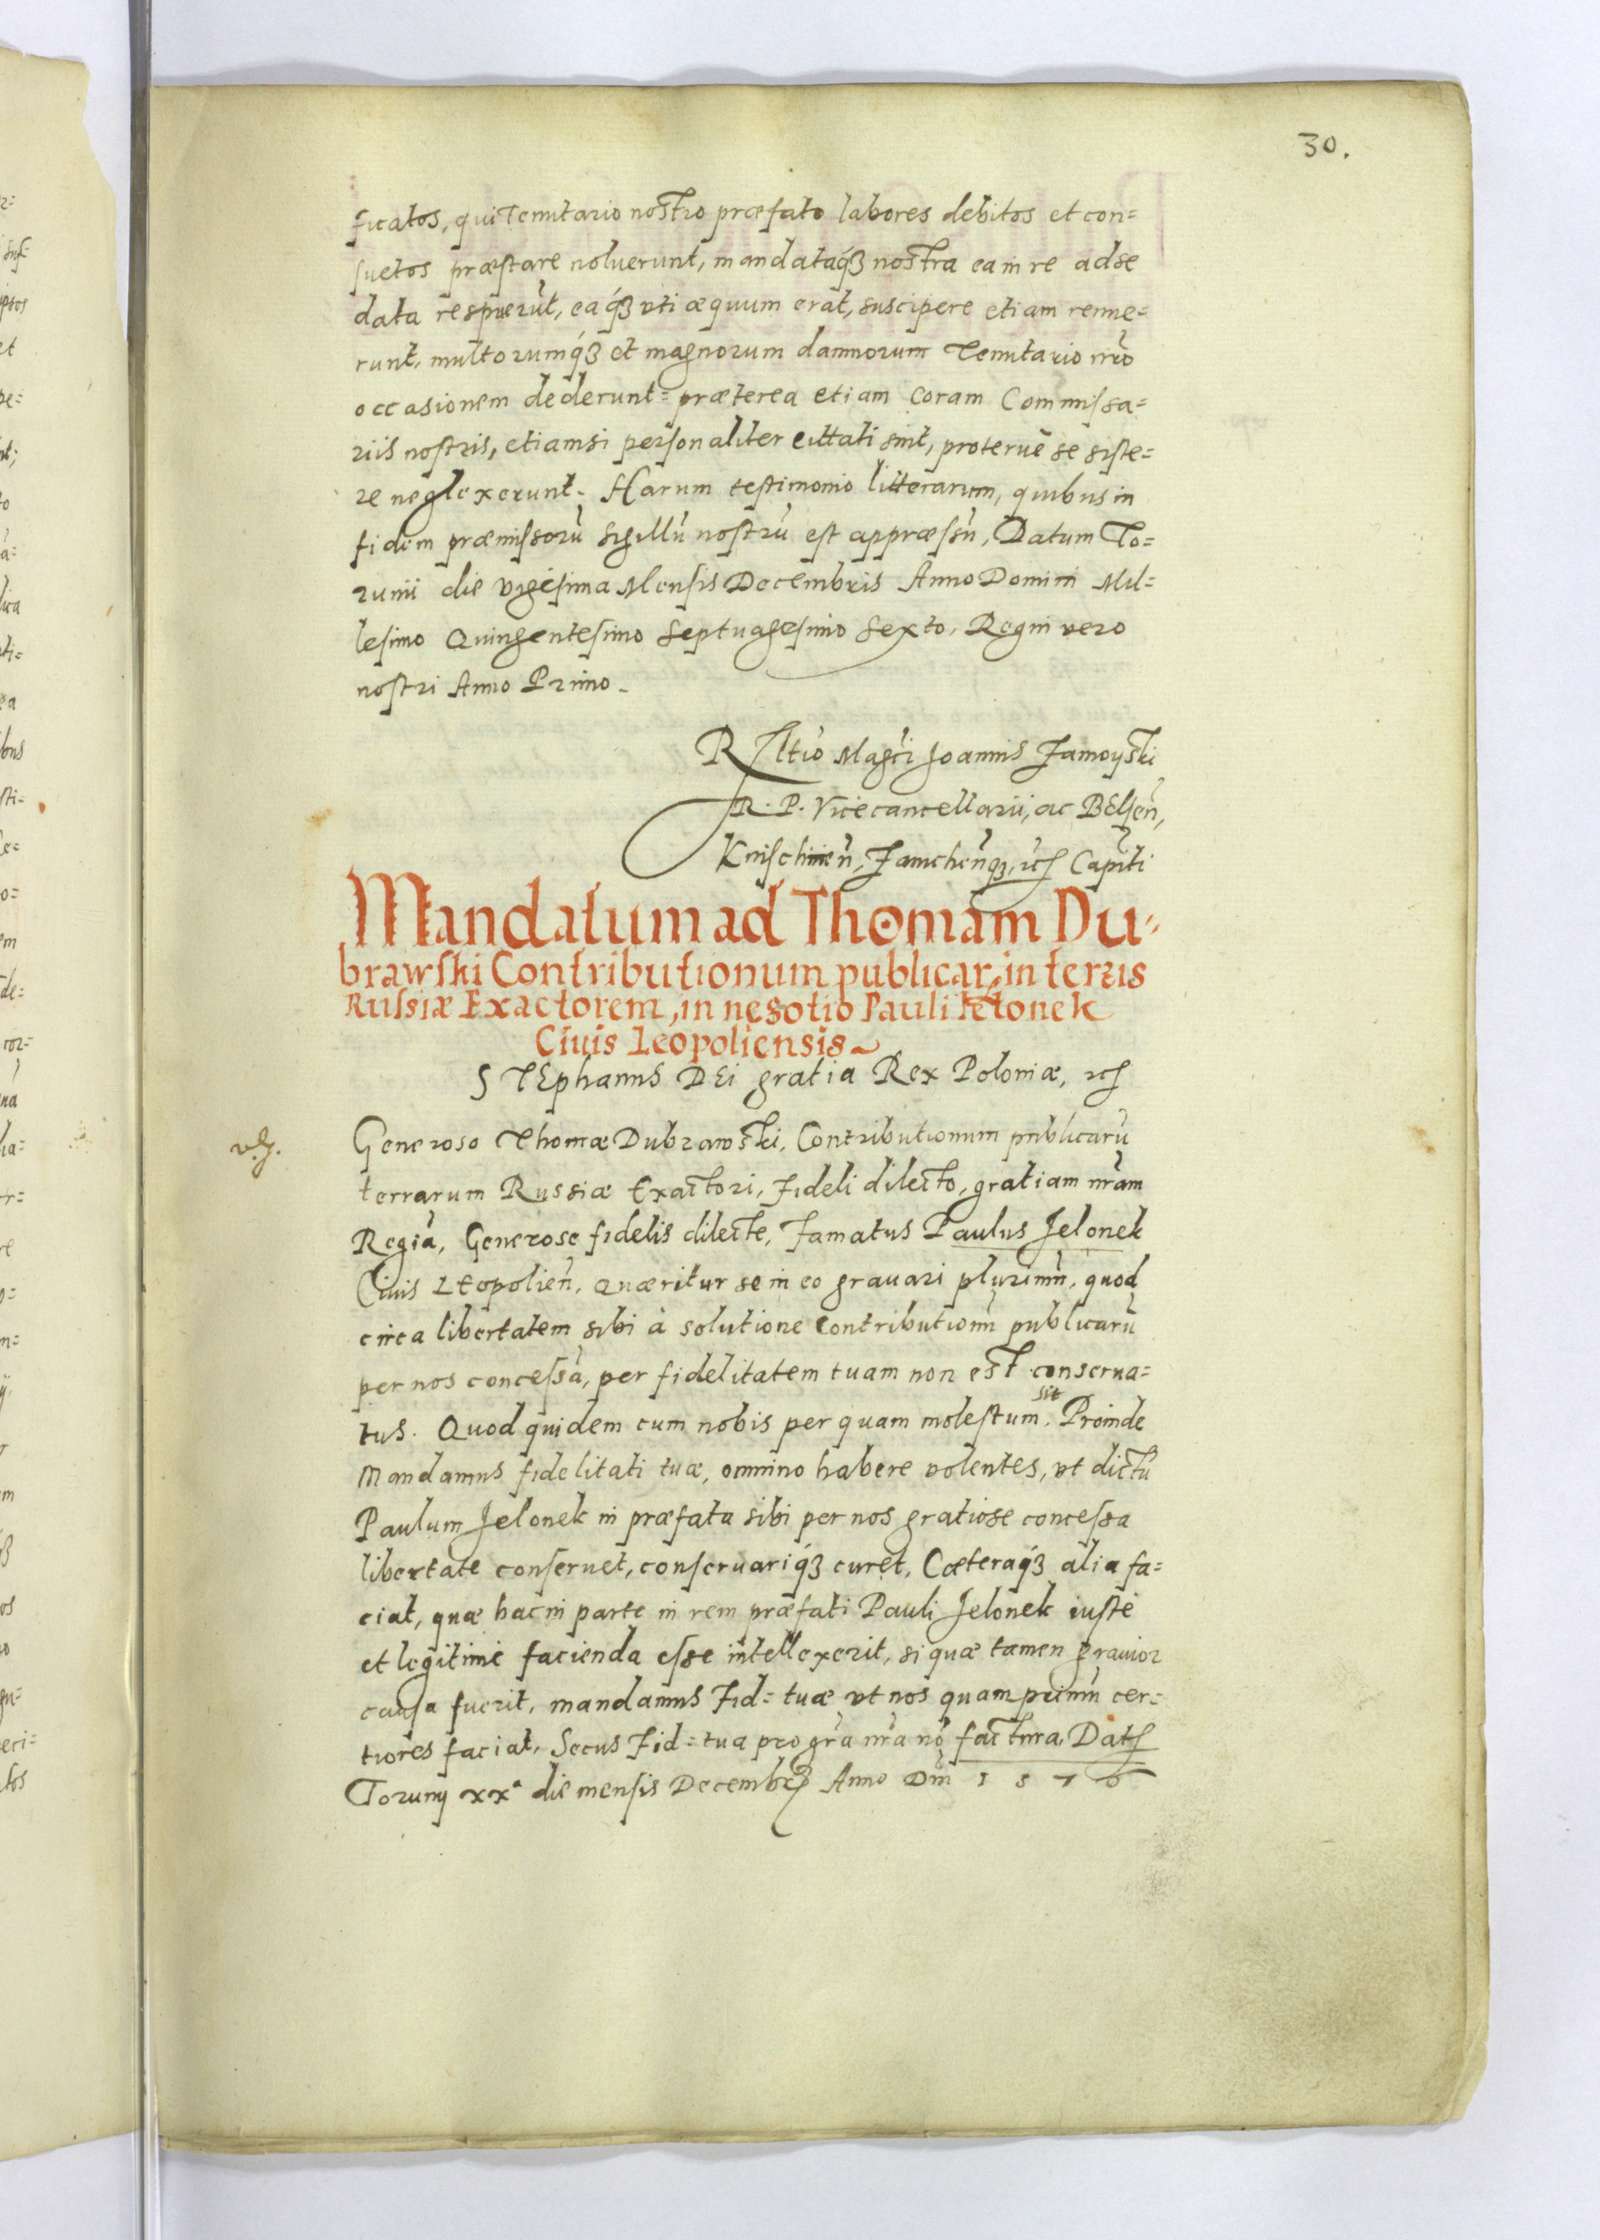 30.
ficatos, qui Tenutario nostro præfato labores debitos et con=
suetos præstare noluerunt, mandataq́ꝫ nostra ea in re ad se
data respuerūt, eaq́ꝫ vti æquum erat, suscipere etiam renue=
runt, multorumq́ꝫ et magnorum damnorum Tenutario nr̄o
occasionem dederunt= præterea etiam coram Commissa=
riis nostris, etiamsi personaliter cittati sint, proterue se siste=
re neglexerunt. Harum testimonio litterarum, quibus in
fidem præmissorū sigillū nostrū est appræssū, Datum To=
runii die vigesima Mensis Decembris Anno Domini Mil=
lesimo Quingentesimo Septuagesimo Sexto, Regni vero
nostri Anno Primo.
Rltio Magci Joannis Zamoyski
R. P. Vicecancellarii, ac Belsen̄,
Knischinen̄, Zamchen̄qꝫ, etc Capnti
Mandatum ad Thomam Du=
brawski Contributionum publicar, in terris
Russiæ Exactorem, in negotio Pauli Jelonek
Ciuis Leopoliensis
STEphanus DEi gratia Rex Poloniæ, etc
Generoso Thomæ Dubrawski, Contributionum publicarū
terrarum Russiæ Exactori, Fideli dilecto, gratiam nr̄am
Regiā, Generose fidelis dilecte, Famatus Paulus Jelonek
Ciuis Leopolien̄, quæritur se in eo grauari plurimū, quod
circa libertatem sibi à solutione Contributionū publicarū
per nos concessā, per fidelitatem tuam non est conserua=
tus. Quod quidem cum nobis per quam molestum sit. Proinde
Mandamus fidelitati tuæ, omnino habere volentes, vt dictū
Paulum Jelonek in præfata sibi per nos gratiose concessa
libertate conseruet, conseruariq́ꝫ curet, Cæteraq́ꝫ alia fa=
ciat, quæ hac in parte in rem præfati Pauli Jelonek iuste
et legitime facienda esse intellexerit, si quæ tamen grauior
causa fuerit, mandamus Fid= tuæ vt nos quam primū cer=
tiores faciat, Secus Fid= tua pro gr̄a nr̄a nō factura, Dat
Torunij xxa die mensis Decembr Anno Dm̄ 1576